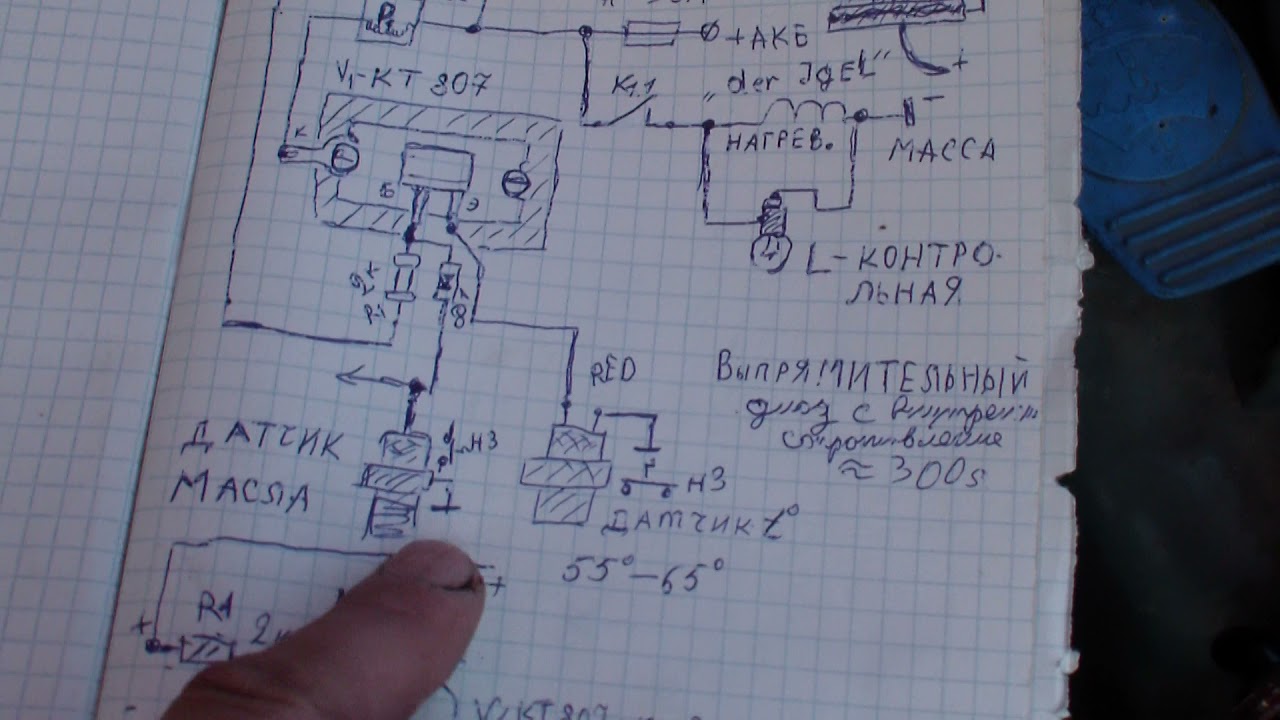 +АКБ
V₁-КТ 807
К1.1
„der IgEL"
К
НАГРЕВ.
МАССА
Б
Э
L-КОНТРО-
ЛЬНАЯ
2к
R1
RED
ВЫПРЯМИТЕЛЬНЫЙ
диод с внутрен
сопротивление
≈ 300
ДАТЧИК
МАСЛА
НЗ
НЗ
ДАТЧИК t°
55°-65°
+
R1
2к
V₁ КТ 807